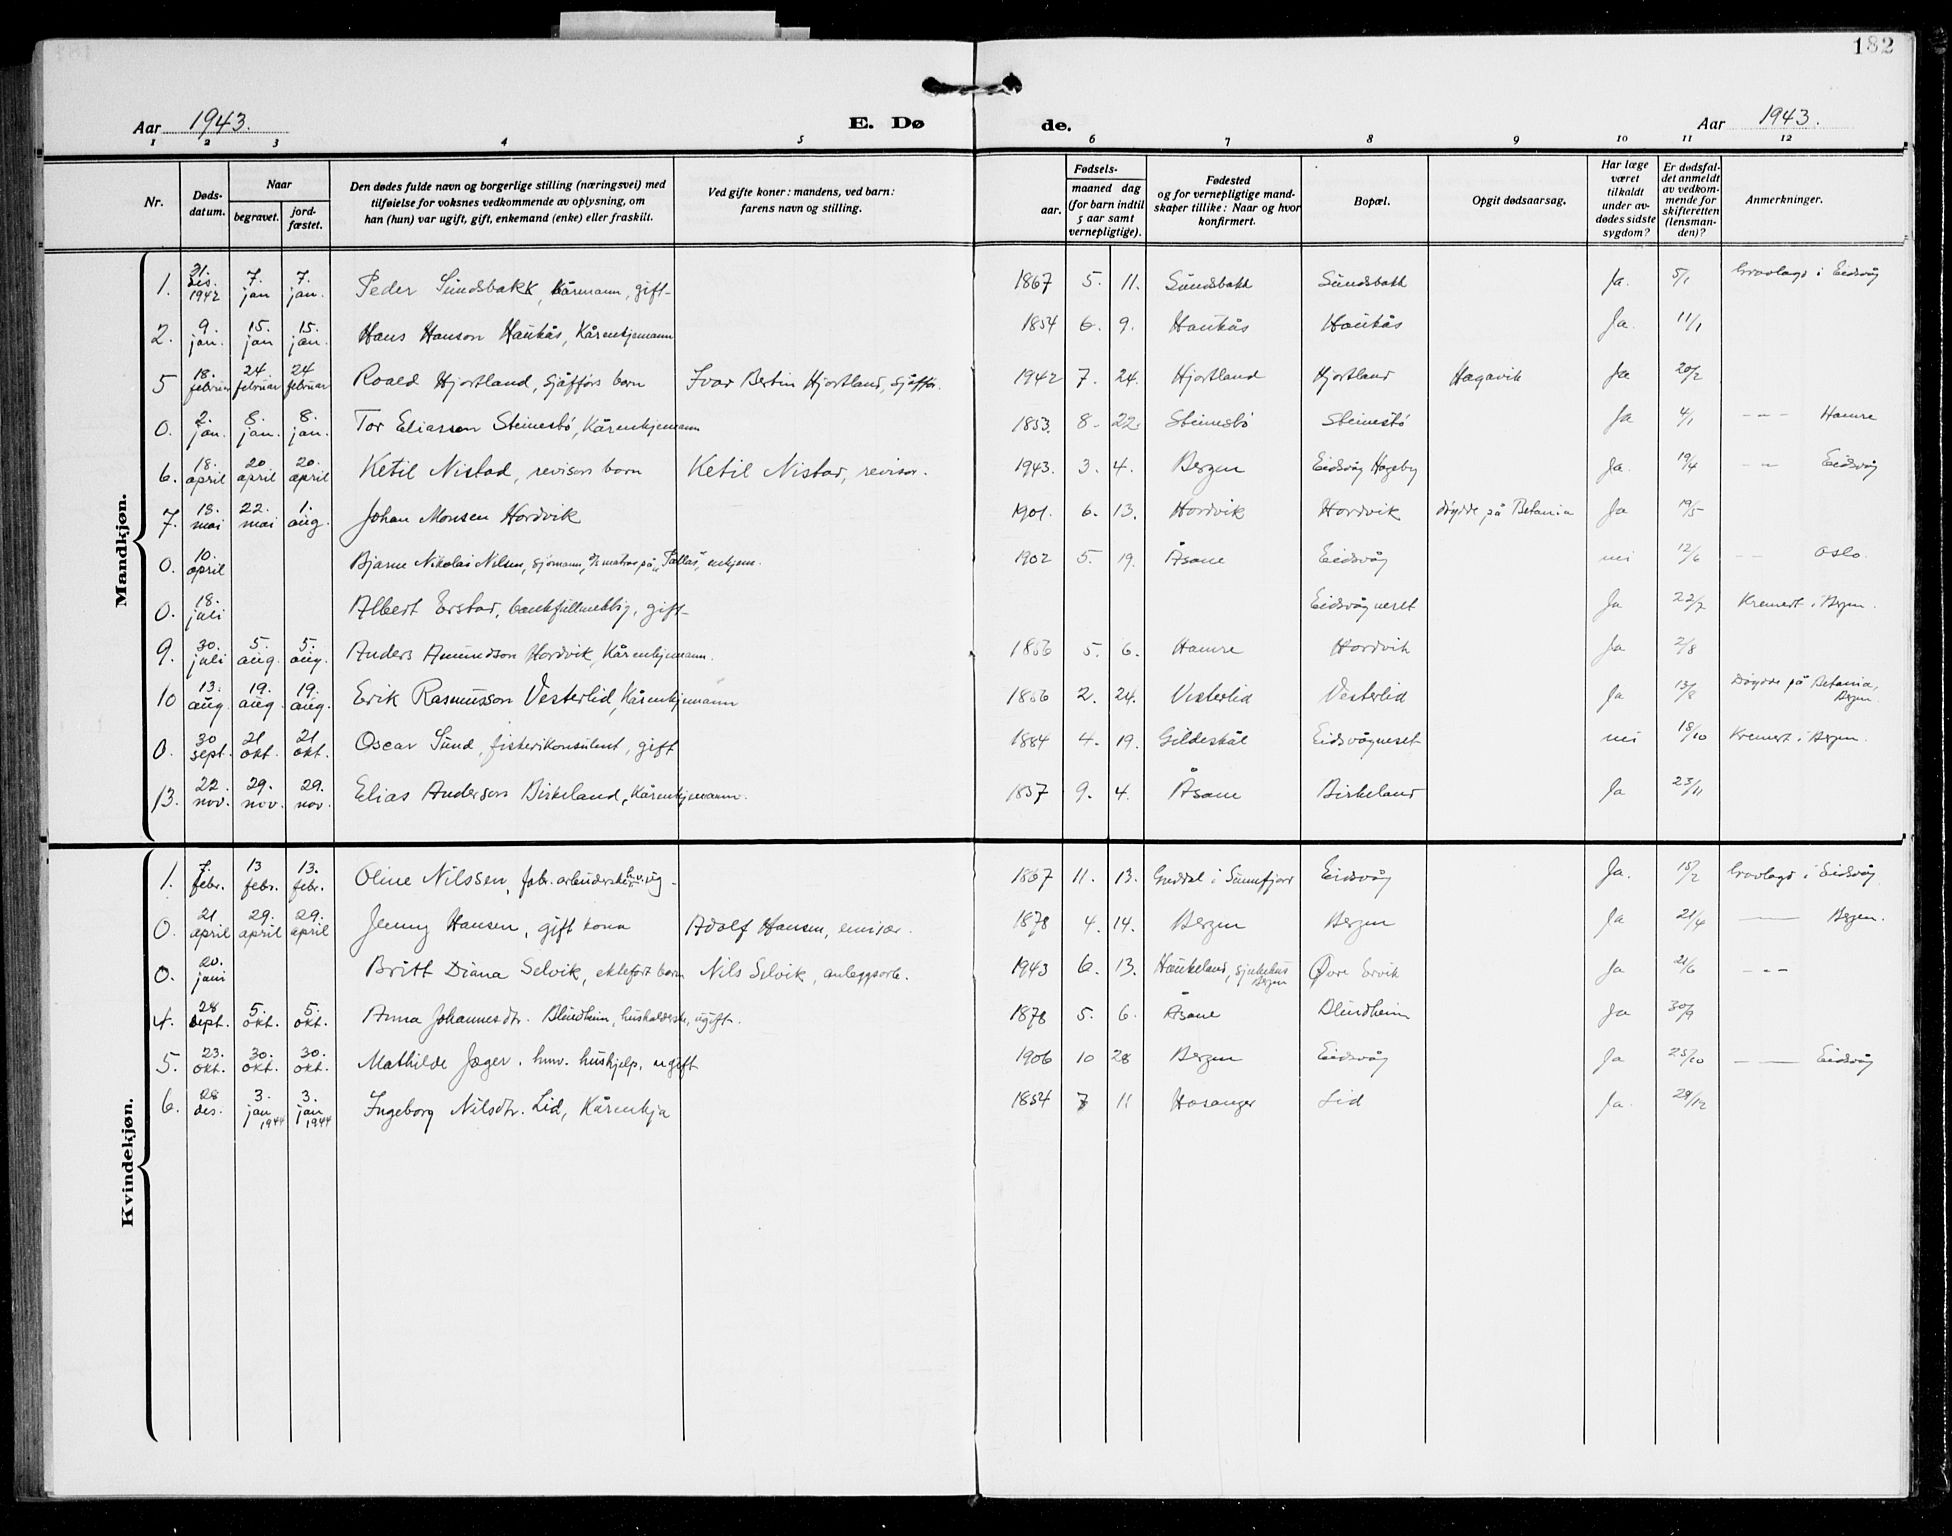 182
Aar 1943. E. Dø de. Aar 1943.
1 2 3 4 5 6 7 8 9 10 11 12
Nr. Døds-datum. Naar begravet. jord-fæstet. Den dødes fulde navn og borgerlige stilling (næringsvei) med tilføielse for voksnes vedkommende av oplysning, om han (hun) var ugift, gift, enkemand (enke) eller fraskilt. Ved gifte koner: mandens, ved barn: farens navn og stilling. Fødsels- aar. maaned dag (for barn indtil 5 aar samt vernepligtige). Fødested og for vernepligtige mand-skaper tillike: Naar og hvor konfirmert. Bopæl. Opgit dødsaarsag. Har læge været tilkaldt under av-dødes sidste sygdom? Er dødsfal-det anmeldt av vedkom-mende for skifteretten (lensman-den)? Anmerkninger.
Mandkjøn.
1. 31. des. 1942 7. jan 7. jan. Peder Sundsbakk, kårmann, gift- 1867 5. 11. Sundsbakk Sundsbakk Ja. 5/1 Gravlagd i Eidsvåg
2. 9. jan. 15. jan 15. jan. Hans Hanson Haukås, Kårenkjemann 1854 6. 9. Haukås Haukås Ja. 11/1
5 18. februar 24. februar 24 februar Roald Hjortland, sjåførs barn Ivar Bertin Hjortland, sjåfør. 1942 7. 24. Hjortland Hjortland Hagavik Ja 20/2
0. 2. jan. 8. jan. 8. jan. Tor Eliassen Steinestø, Kårenkjemann 1853. 8- 22. Steinestø Steinestø Ja 4/1 - - - Hamre
6. 18. april 20 april 20. april Ketil Nistad, revisors barn Ketil Nistad, revisor. 1943. 3. 4. Bergen Eidsvåg Hageby Ja. 19/4 - - Eidsvåg
7. 18. mai 22. mai 1. aug. Johan Monsen Hordvik 1901. 6. 13. Hordvik Hordvik døydde på Betania Ja 19/5
0. 10. april Bjarne Nikolai Nilsen, sjømann, matros på „Pallas", enkjem. 1902 5. 19. Åsane Eidsvåg nei 12/6 - - Oslo.
0. 18. juli Albert Erstad, bankfullmektig, gift- Eidsvågneset Ja 22/7 Kremert i Bergen.
9. 30. juli 5. aug. 5. aug. Anders Amundson Hordvik, Kårenkjemann. 1856 5. 6. Hamre Hordvik Ja 2/8
10 13. aug. 19. aug. 19. aug. Erik Rasmusson Vesterlid, Kårenkjemann 1856 2. 24. Vesterlid Vesterlid Ja 13/8 Døydde på Betania, Bergen.
0. 30 sept. 21 okt. 21 okt. Oscar Sund, fiskerikonsulent, gift 1884 4. 19. Gildeskål Eidsvågneset nei 18/10 Kremert i Bergen.
13. 22. nov. 29. nov. 29. nov. Elias Anderson Birkeland, Kårenkjemann. 1857 9. 4. Åsane Birkeland Ja 23/11
Kvindekjøn.
1. 7. febr. 13 febr. 13. febr. Oline Nilssen, fabr. arbeiderske, ug - 1867 11. 13. Guddal i Sunnfjord Eidsvåg Ja. 15/2 Gravlagd i Eidsvåg
0. 21 april 29. april 29. april Jenny Hansen, gift kona Adolf Hansen, emisær. 1878 4. 14. Bergen Bergen Ja 21/4 — Bergen.
0. 20. juni Britt Diana Selvik, ektefødt barn Nils Selvik, anleggsarb. 1943 6. 13. Haukeland, sjukehus Bergen Øvre Ervik Ja 21/6 - - -
4. 28 sept. 5. okt. 5. okt. Anna Johannesdtr. Blindheim, hushalderske, ugift. 1878 5. 6. Åsane Blindheim Ja 30/9
5. 23. okt. 30. okt. 30. okt. Mathilde Jæger, hmv. hushjelp, ugift 1906 10 28 Bergen Eidsvåg Ja 25/10 - — Eidsvåg
6. 28 des. 3. jan 1944 3. jan 1944 Ingeborg Nilsdtr. Lid, Kårenkja 1854 7 11 Hosanger Lid Ja. 29/12